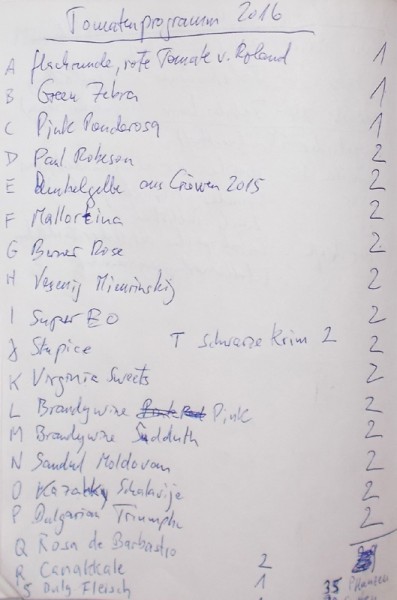 Tomatenprogramm 2016
A flachrunde, rote Tomate v. Roland 1
B Green Zebra 1
C Pink Ponderosa 1
D Paul Robeson 2
E Dunkelgelbe aus Cröwen 2015 2
F Mallorkina 2
G Berner Rose 2
H Vesenij Mieurinskij 2
I Super EO 2
J Stupice T schwarze Krim 2 2
K Virginia Sweets 2
L Brandywine Pink 2
M Brandywine Sudduth 2
N Sandul Moldovan 2
O Schalavije 2
P Bulgarian Triumph 2
Q Rosa de Barbastro
R Canakkale 2
S Fleisch 1 35 Pflanzen